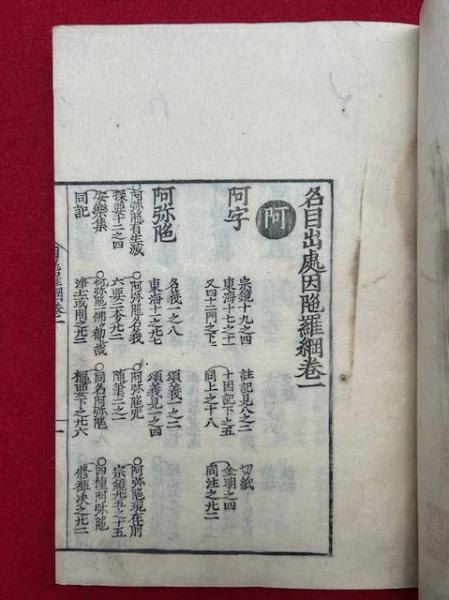 名目出處因陁羅網卷一
阿
阿字
宗鏡十九之四 註記見八之二 切紙
東海十七之十一 十因記下之五 金明之四
又四十二門之下二 同上之十八 同注之九二
阿弥陁
名義一之八 頌義一之二
東海十一之九七 頌義見一之四
○阿弥陁有生滅 ○阿弥陁名義 ○阿弥陁咒 ○阿弥陁現在前
探要十二之四 六要三本九二 隨筆二之一 宗鏡九五之十五
安樂集 ○阿弥陁佛勸哉 ○同名阿弥陁 ○四種阿弥陁
同記 淨土或問之九三 樞要下之九六 修禪決之九二